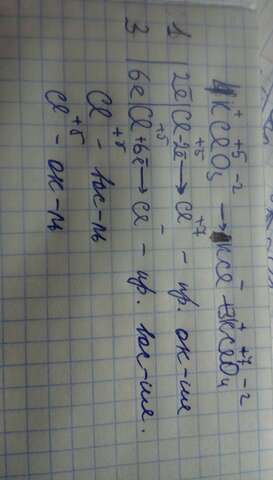 4KClO₃ → KCl + 3KClO₄
1 | 2ē | Cl⁺⁵ - 2ē → Cl⁺⁷ - пр. ок-ния
3 | 6ē | Cl⁺⁵ + 6ē → Cl⁻ - пр. вос-ния.
Cl⁺⁵ - вос-ль
Cl⁺⁵ - ок-ль